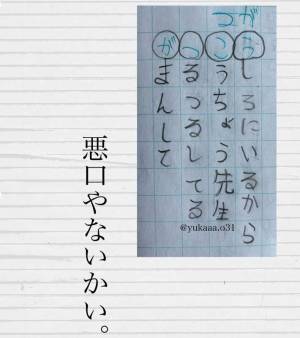 つが
うしろにいるから
こうちょう先生
つるつるしてる
がまんして
@yukaaa.o31
悪口やないかい。